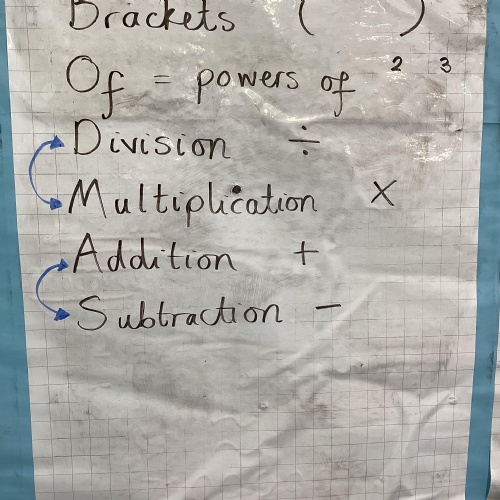 Brackets ( )
Of = powers of ² ³
Division ÷
Multiplication ×
Addition +
Subtraction −